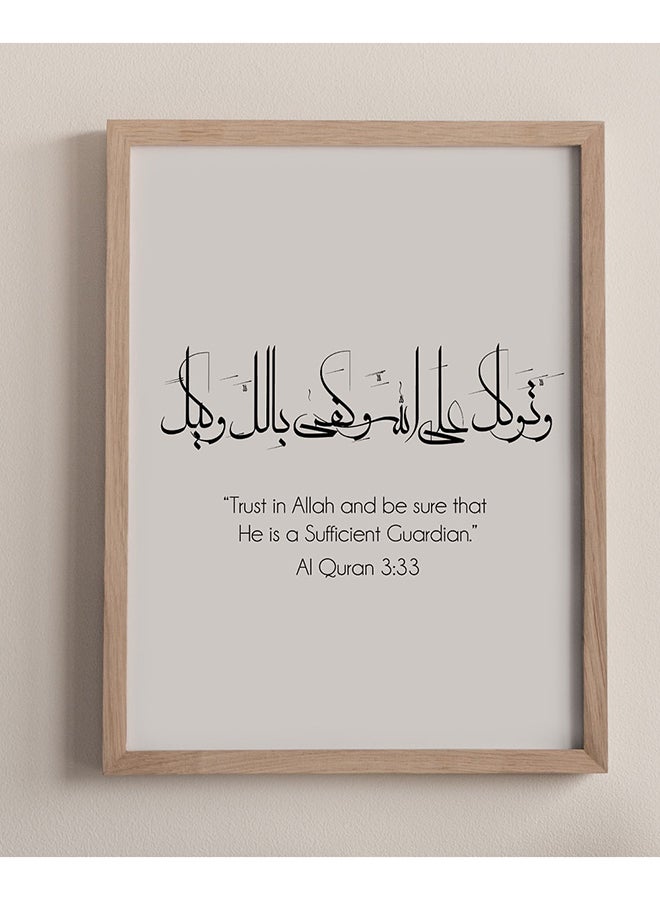 وَتَوكل على الله وَكفى باللَّ وكيل
“Trust in Allah and be sure that
He is a Sufficient Guardian.”
Al Quran 3:33